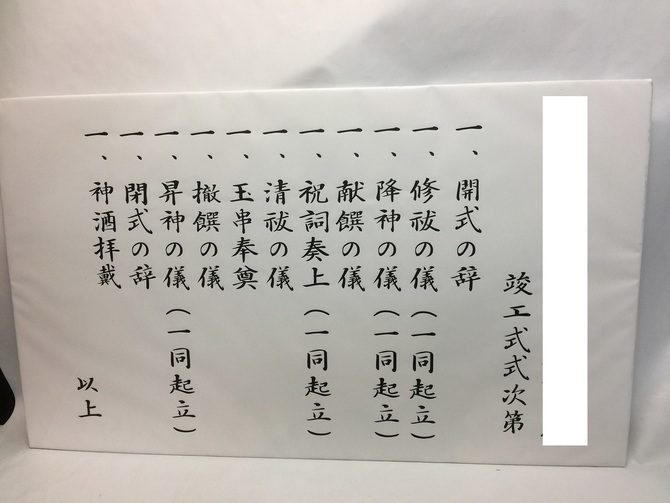 竣工式式次第
一、開式の辞
一、修祓の儀(一同起立)
一、降神の儀(一同起立)
一、献饌の儀
一、祝詞奏上(一同起立)
一、清祓の儀
一、玉串奉奠
一、撤饌の儀
一、昇神の儀(一同起立)
一、閉式の辞
一、神酒拝戴
以上